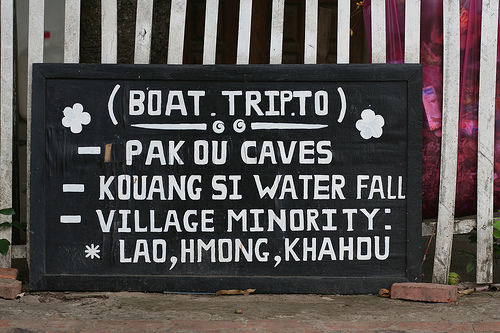 (BOAT.TRIP.TO)
- PAK OU CAVES
- KOUANG SI WATER FALL
- VILLAGE MINORITY:
* LAO,HMONG,KHAHOU